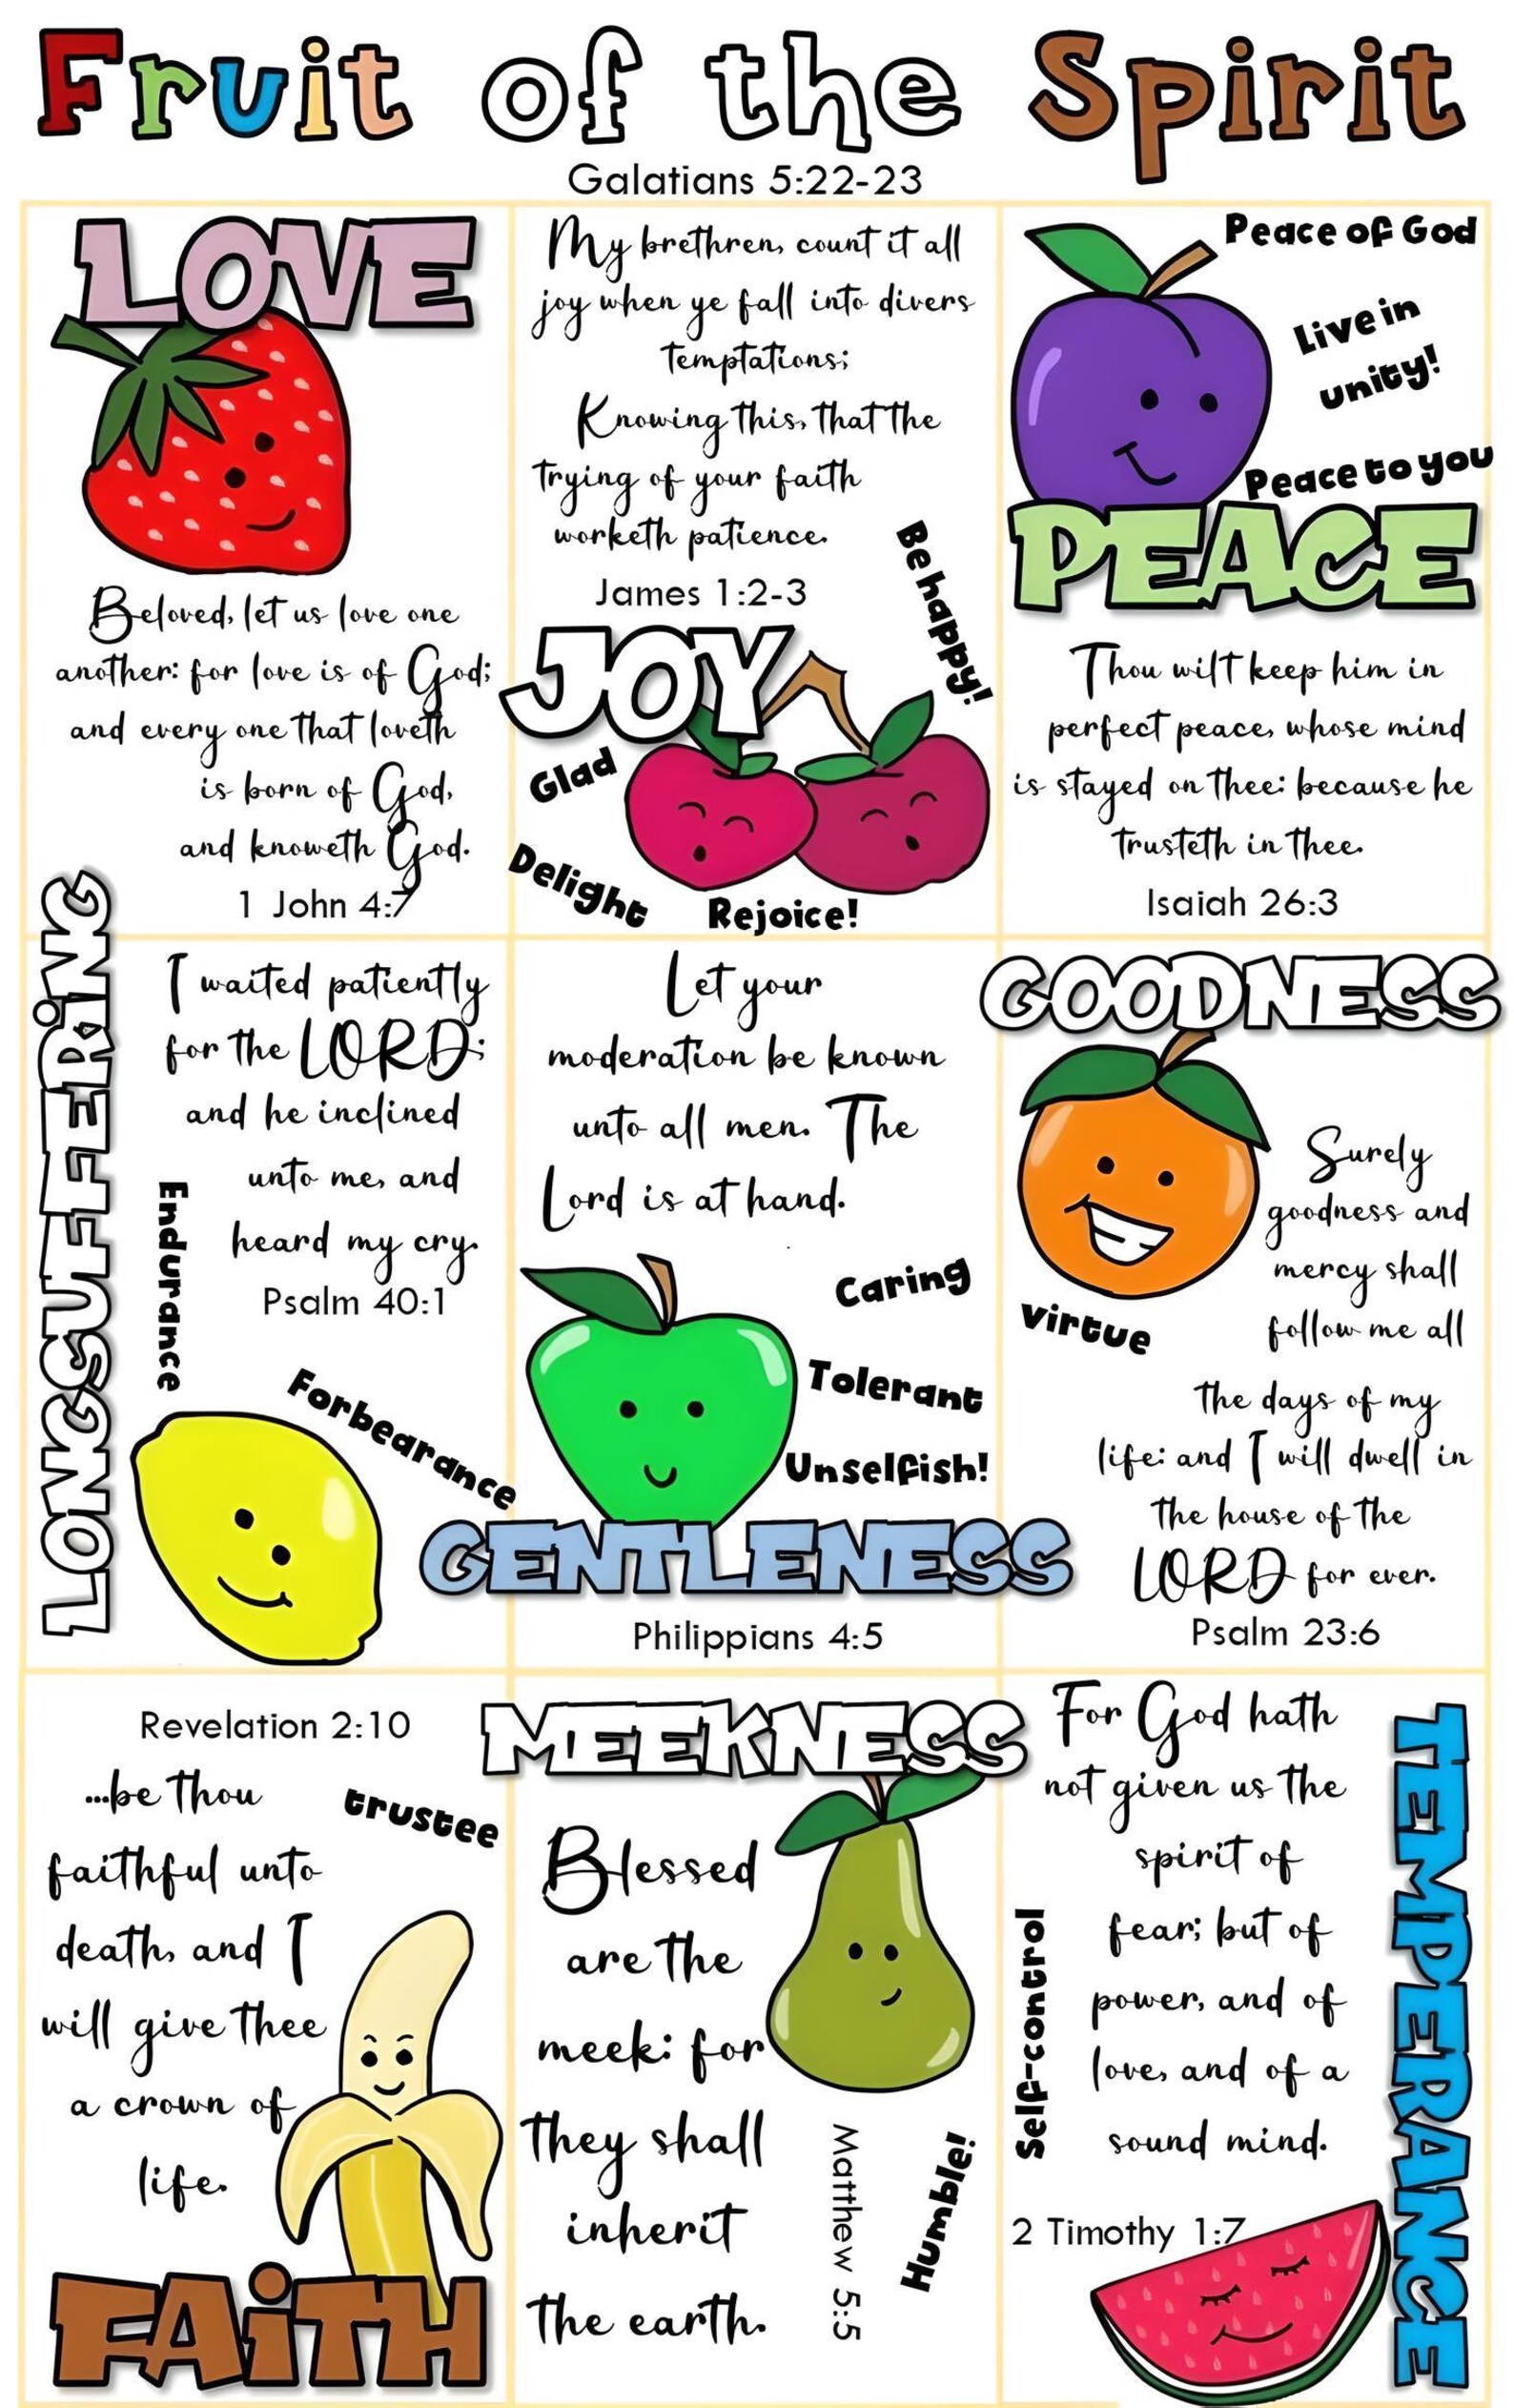 Fruit of the Spirit
Galatians 5:22-23
LOVE
Beloved, let us love one
another: for love is of God;
and every one that loveth
is born of God,
and knoweth God.
1 John 4:7
My brethren, count it all
joy when ye fall into divers
temptations;
Knowing this, that the
trying of your faith
worketh patience.
James 1:2-3
Be happy!
JOY
Glad
Delight
Rejoice!
Peace of God
Live in
unity!
Peace to you
PEACE
Thou wilt keep him in
perfect peace, whose mind
is stayed on thee: because he
trusteth in thee.
Isaiah 26:3
LONGSUFFERiNG
I waited patiently
for the LORD;
and he inclined
unto me, and
heard my cry.
Psalm 40:1
Endurance
Forbearance
Let your
moderation be known
unto all men. The
Lord is at hand.
Caring
Tolerant
Unselfish!
GENTLENESS
Philippians 4:5
GOODNESS
Surely
goodness and
mercy shall
follow me all
the days of my
life: and I will dwell in
the house of the
LORD for ever.
Psalm 23:6
virtue
Revelation 2:10
...be thou
faithful unto
death, and I
will give thee
a crown of
life.
trustee
FAiTH
MEEKNESS
Blessed
are the
meek: for
they shall
inherit
the earth.
Matthew 5:5
Humble!
For God hath
not given us the
spirit of
fear; but of
power, and of
love, and of a
sound mind.
2 Timothy 1:7
Self-control
TEMPERANCE